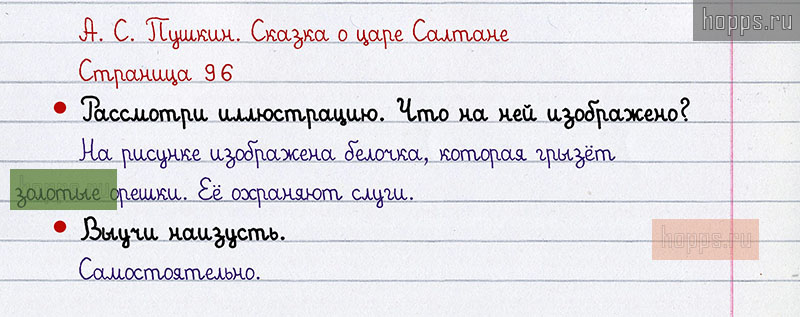 hopps.ru
А. С. Пушкин. Сказка о царе Салтане
Страница 96
• Рассмотри иллюстрацию. Что на ней изображено?
На рисунке изображена белочка, которая грызёт
золотые орешки. Её охраняют слуги.
• Выучи наизусть.
hopps.ru
Самостоятельно.